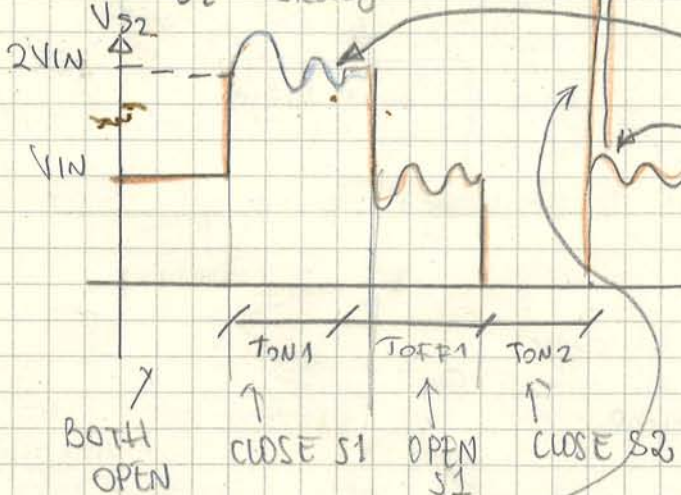 VS2
2VIN
VIN
TON1 TOFF1 TON2
BOTH OPEN
CLOSE S1
OPEN S1
CLOSE S2